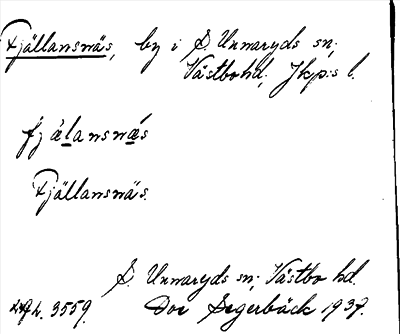 Fjällansnäs, by i S. Unnaryds sn;
Västbo hd; Jkp:s l.
fjälansnäs
Fjällansnäs.
S. Unnaryds sn; Västbo hd.
h. 3559. Segerbäck 1937.